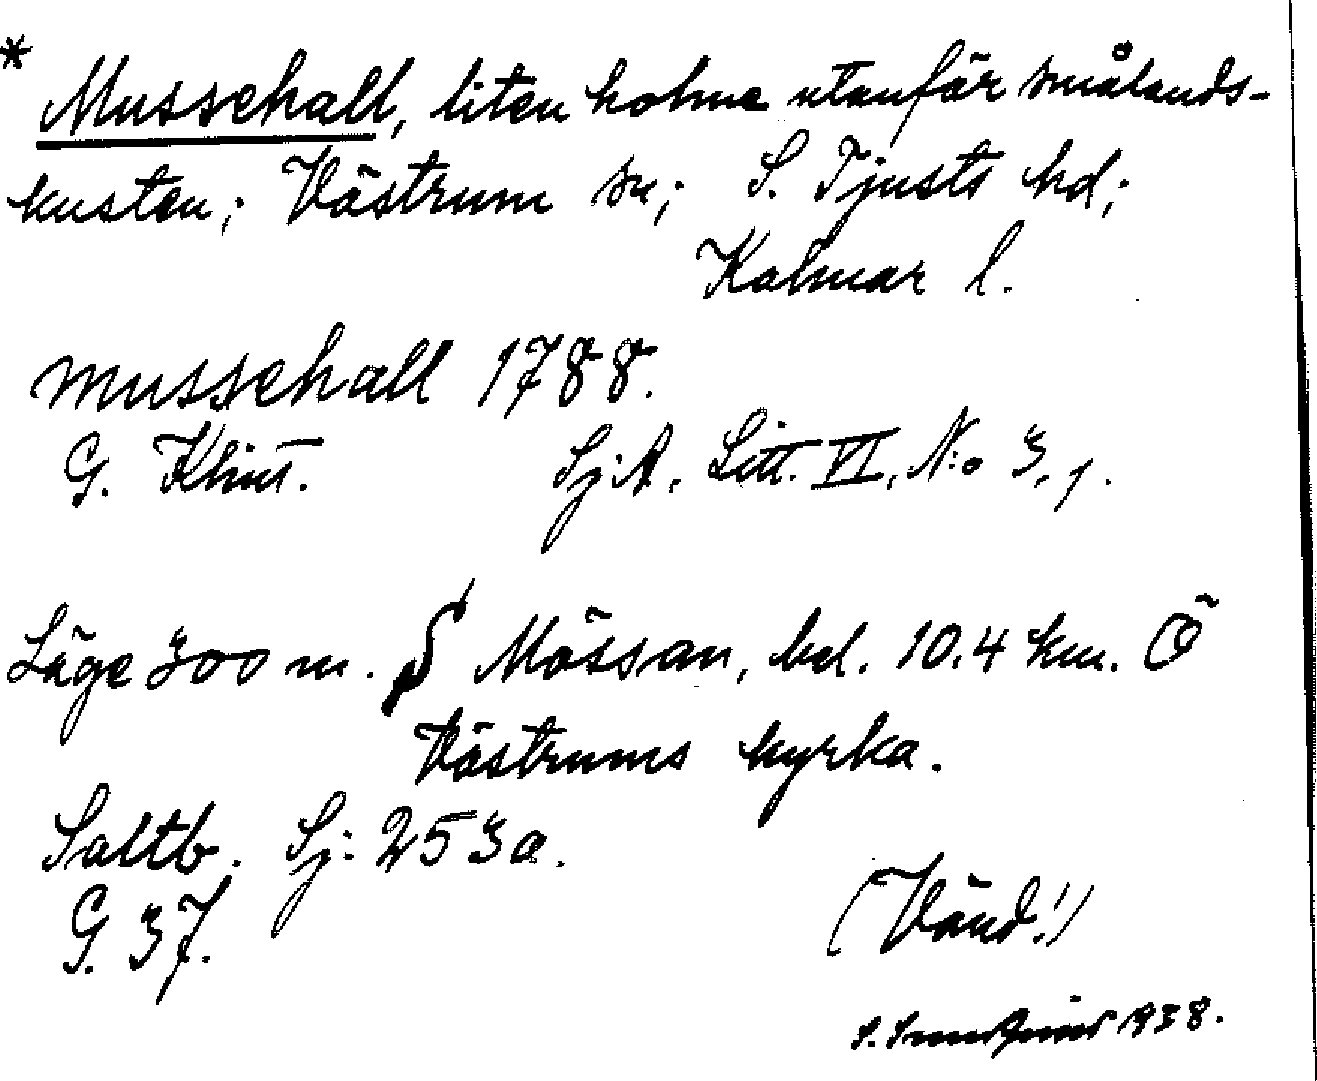 * Mussehall, liten holme utanför smålands-
kusten; Västrum sn; S. Tjusts hd;
Kalmar l.
Mussehall 1788.
G. Klint. Sj:A, Litt. VI, N:o 3, 1.
Läge 300 m. S Mössan, bel. 10.4 km. Ö
Västrums kyrka.
Saltb. Sj: 253a.
G. 37.
(Vänd!)
S. 1938.